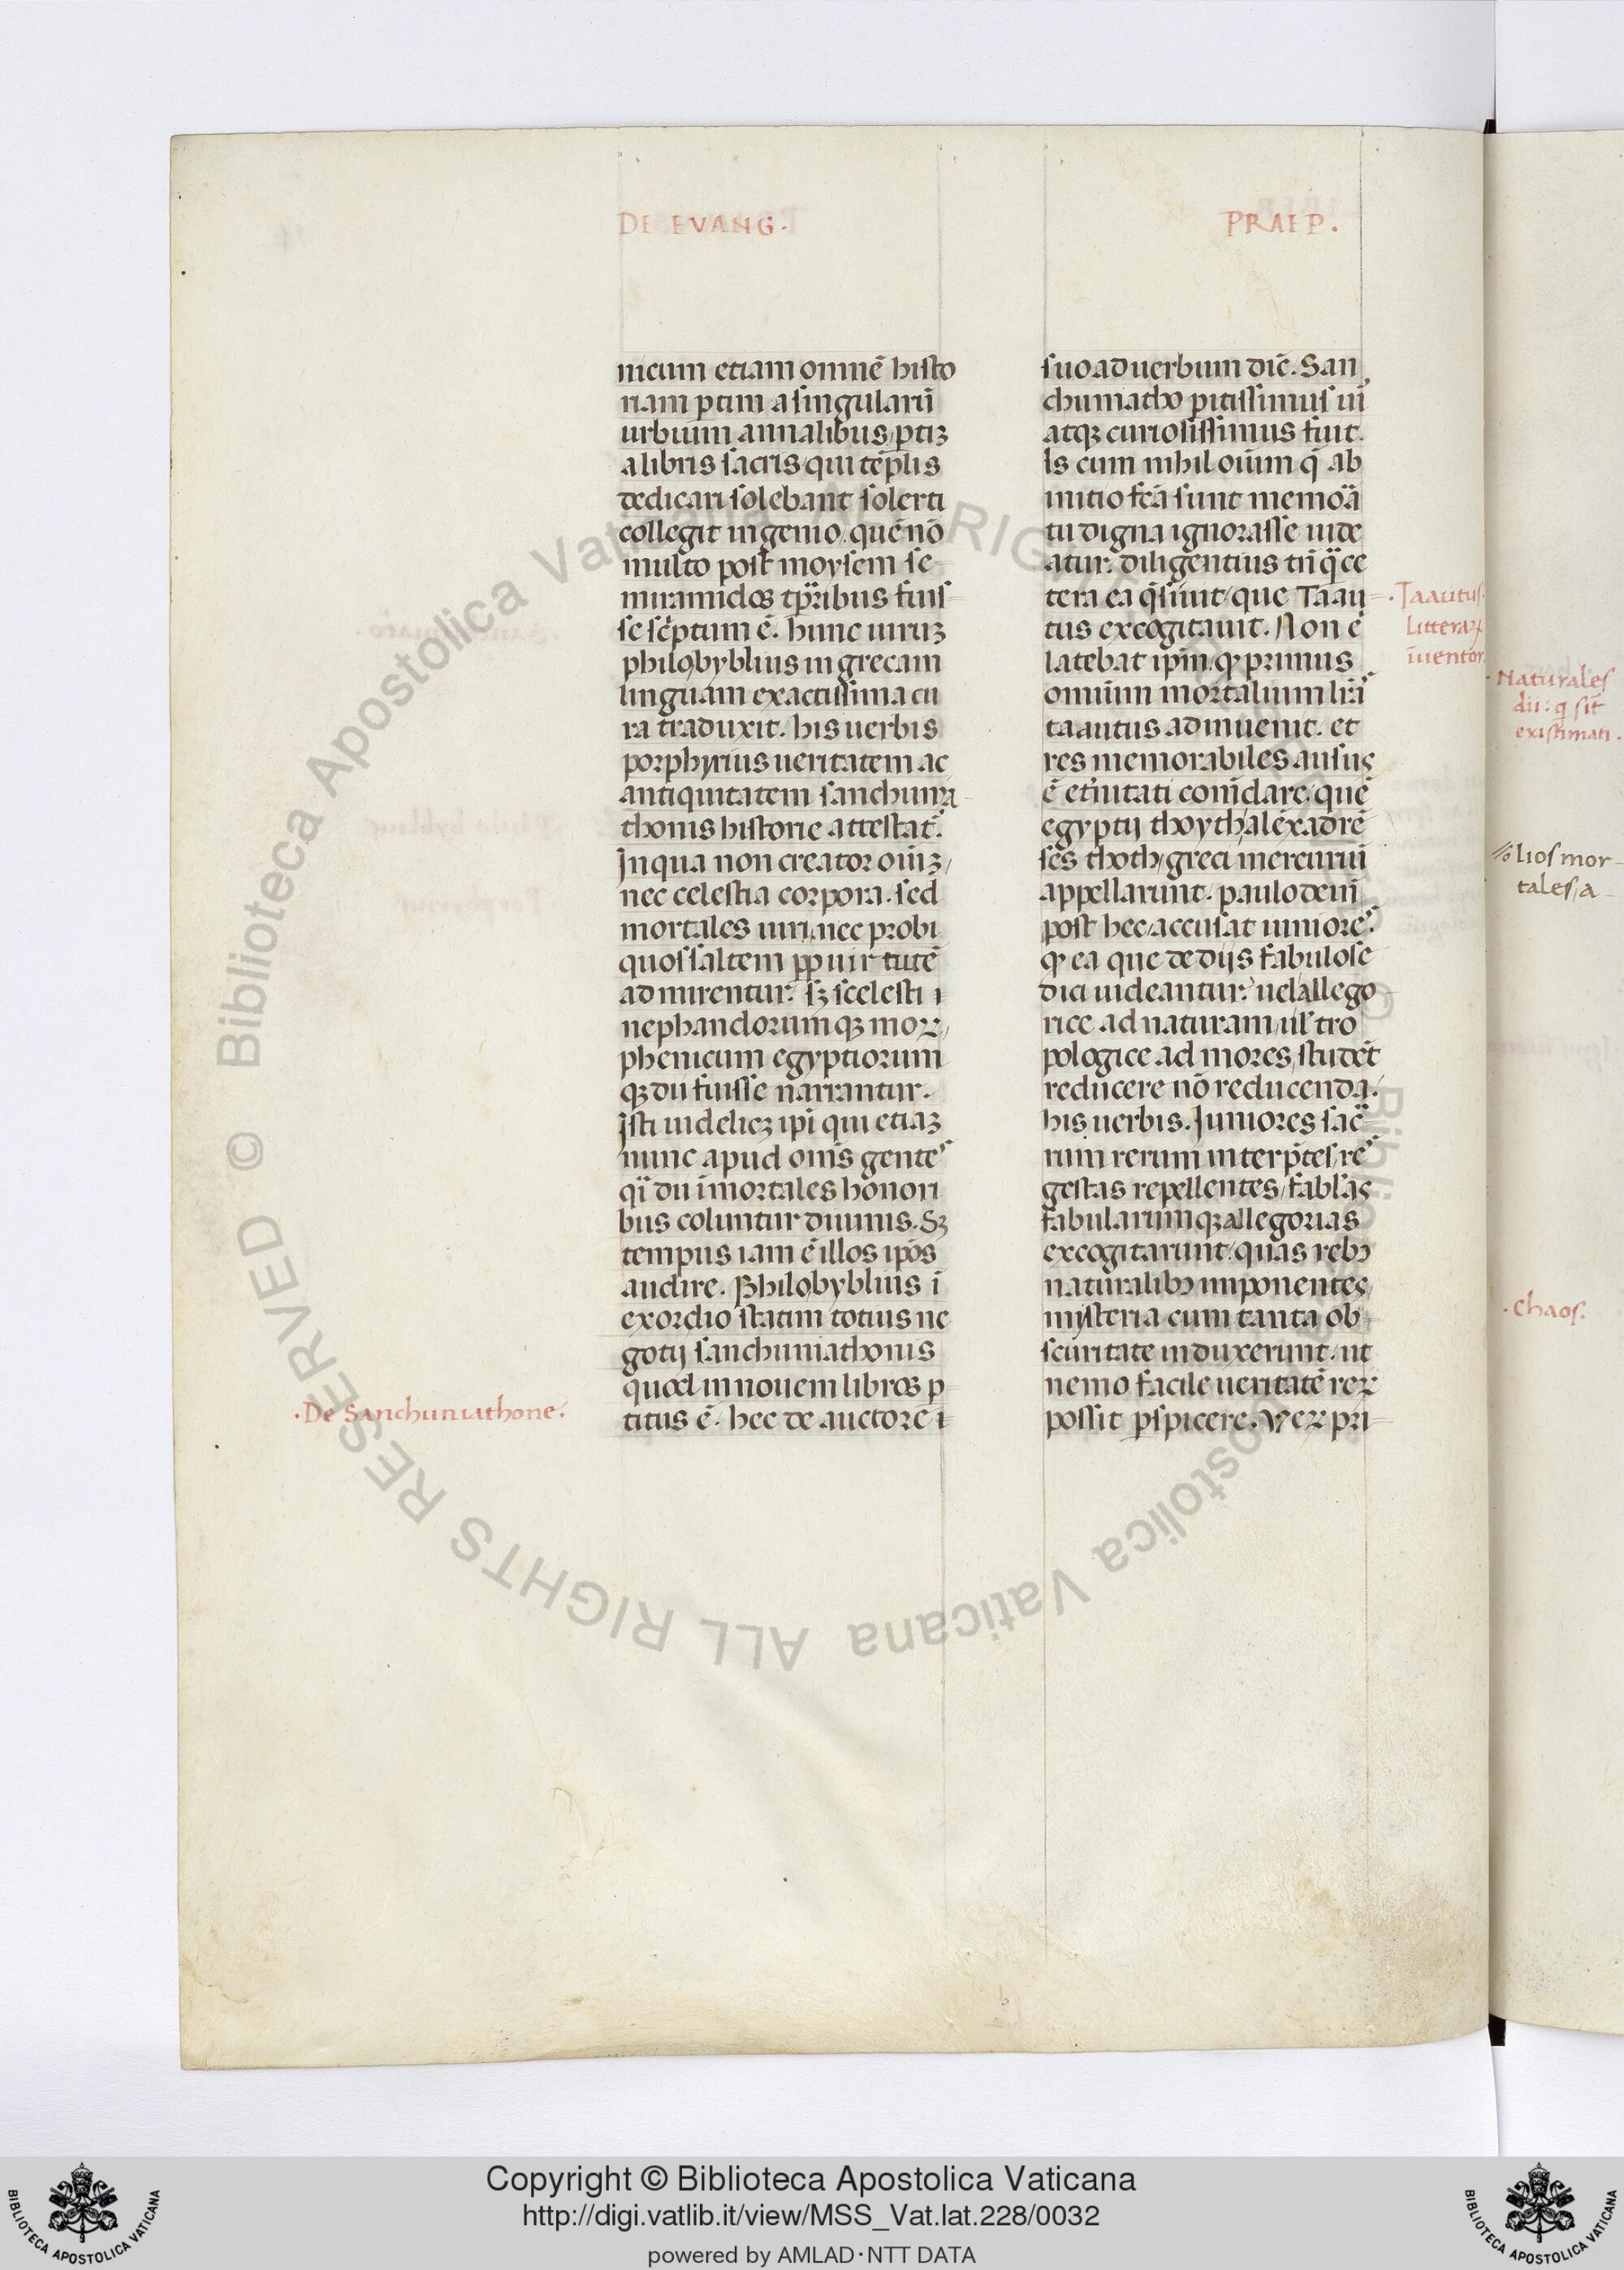 DE EVANG.
PRAEP.
nicum etiam omnē histo
riam ptim a singularū
urbium annalibus, ptiꝫ
a libris sacris, qui tēplis
dedicari solebant solerti
collegit ingenio. quē nō
multo post moysem se
miramidos tꝑribus fuis
se scͥptum ē. hunc uiruꝫ
philobyblius in grecam
linguam exactissima cu
ra traduxit. his uerbis
porphyrius ueritatem ac
antiquitatem sanchunia
thonis historie attestat᷑.
In qua non creator oīuꝫ,
nec celestia corpora. sed
mortales uiri, nec probi
quos saltem ꝓp uirtutē
admirentur. sꝫ scelesti
nephandorumqꝫ moꝝ,
phenicum egyptiorum
qꝫ dii fuisse narrantur.
Isti uidelicꝫ ipi qui etiaꝫ
nunc apud oms gentes
qͣi dii imortales honori
bus coluntur diuinis. Sꝫ
tempus iam ē illos ipos
audire. Philobyblius ī
exordio statim totius ne
gotij sanchuniathonis
quod in nouem libros ꝑ
titus ē. hec de auctore ī
suo ad uerbum dic̄. San
chuniatho pitissimus ui
atqꝫ curiosissimus fuit.
Is cum nihil oīum q̄ ab
initio fcā sunt memoͣa
tu digna ignorasse uide
atur. diligentius tn̄ qͣ ce
tera ea q̄siuit, que Taau
tus excogitauit. Non ē
latebat ipm̄. ꝙ primus
omnium mortalium lr̄is
taautus adinuenit. et
res memorabiles ausus
ē et'nitati com̄dare. quē
egyptij thoyth, alexādrē
ses thoth, greci mercuriū
appellarunt. paulo deni
post hec, accusat iuniores.
ꝙ ea que de dijs fabulose
dici uideantur. uel allego
rice ad naturam, ul' tro
pologice ad mores, studēt
reducere nō reducenda.
his uerbis. Iuniores sacͣ
rum rerum interp̄tes, res
gestas repellentes, fabl'as
fabularumqꝫ allegorias
excogitarunt. quas rebꝫ
naturalibꝫ imponentes,
misteria cum tanta ob
scuritate induxerunt. ut
nemo facile ueritatē reꝝ
possit pspicere. Veꝝ pri
·De Sanchuniathone.
·Taautus
litteraꝝ
īuentor.
·Naturales
dii: q̄ sīt
existimati.
lios mor
tales, a
·Chaos.
© Biblioteca Apostolica Vaticana ALL RIGHTS RESERVED
Copyright © Biblioteca Apostolica Vaticana
http://digi.vatlib.it/view/MSS_Vat.lat.228/0032
powered by AMLAD·NTT DATA
BIBLIOTECA APOSTOLICA VATICANA
BIBLIOTECA APOSTOLICA VATICANA